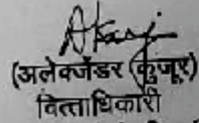 (अलेक्जेंडर कुजूर)
वित्ताधिकारी